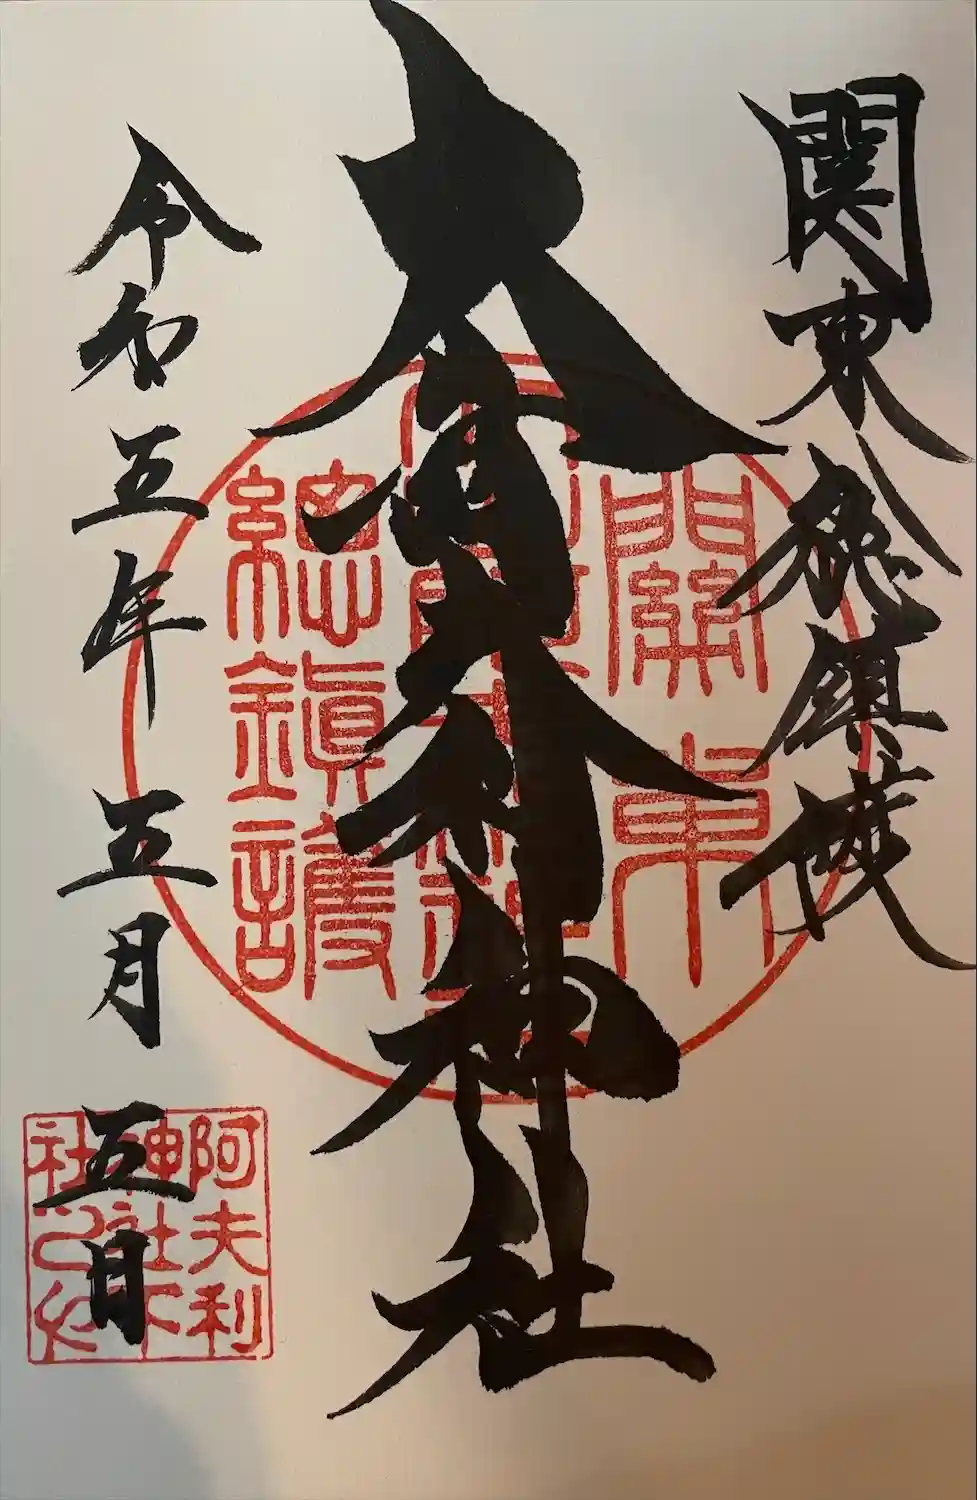 関東総鎮護
大山阿夫利神社
令和五年五月五日
關東
總鎭護
阿夫利
神社下
社之印